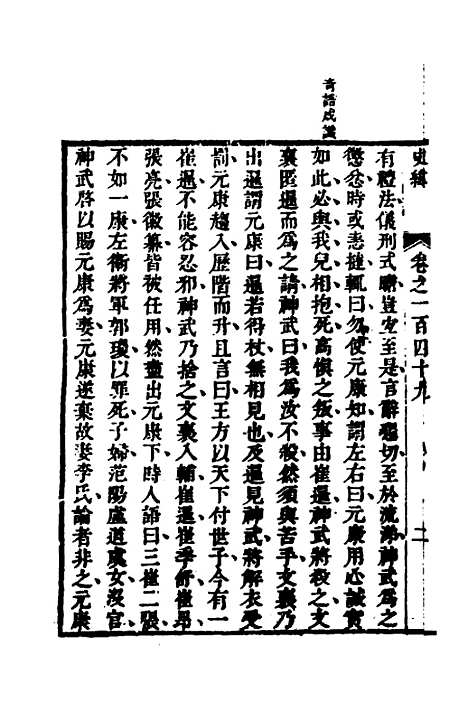 史緯
卷之一百四十九
二
奇語成讖
有禮法儀刑式瞻豈宜至是言辭懇切至於流涕神武爲之
懲忿時或恚撻輒曰勿使元康知謂左右曰元康用心誠實
如此必與我兒相抱死高愼之叛事由崔暹神武將殺之文
襄匿暹而爲之請神武曰我爲汝不殺然須與苦手文襄乃
出暹謂元康曰暹若得杖無相見也及暹見神武將解衣受
罰元康趨入歷階而升且言曰王方以天下付世子今有一
崔暹不能容忍邪神武乃捨之文襄入輔崔暹崔季舒崔昂
張亮張徽纂皆被任用然盡出元康下時人語曰三崔二張
不如一康左衛將軍郭瓊以罪死子婦范陽盧道虔女沒官
神武啓以賜元康爲妻元康遂棄故妻李氏論者非之元康